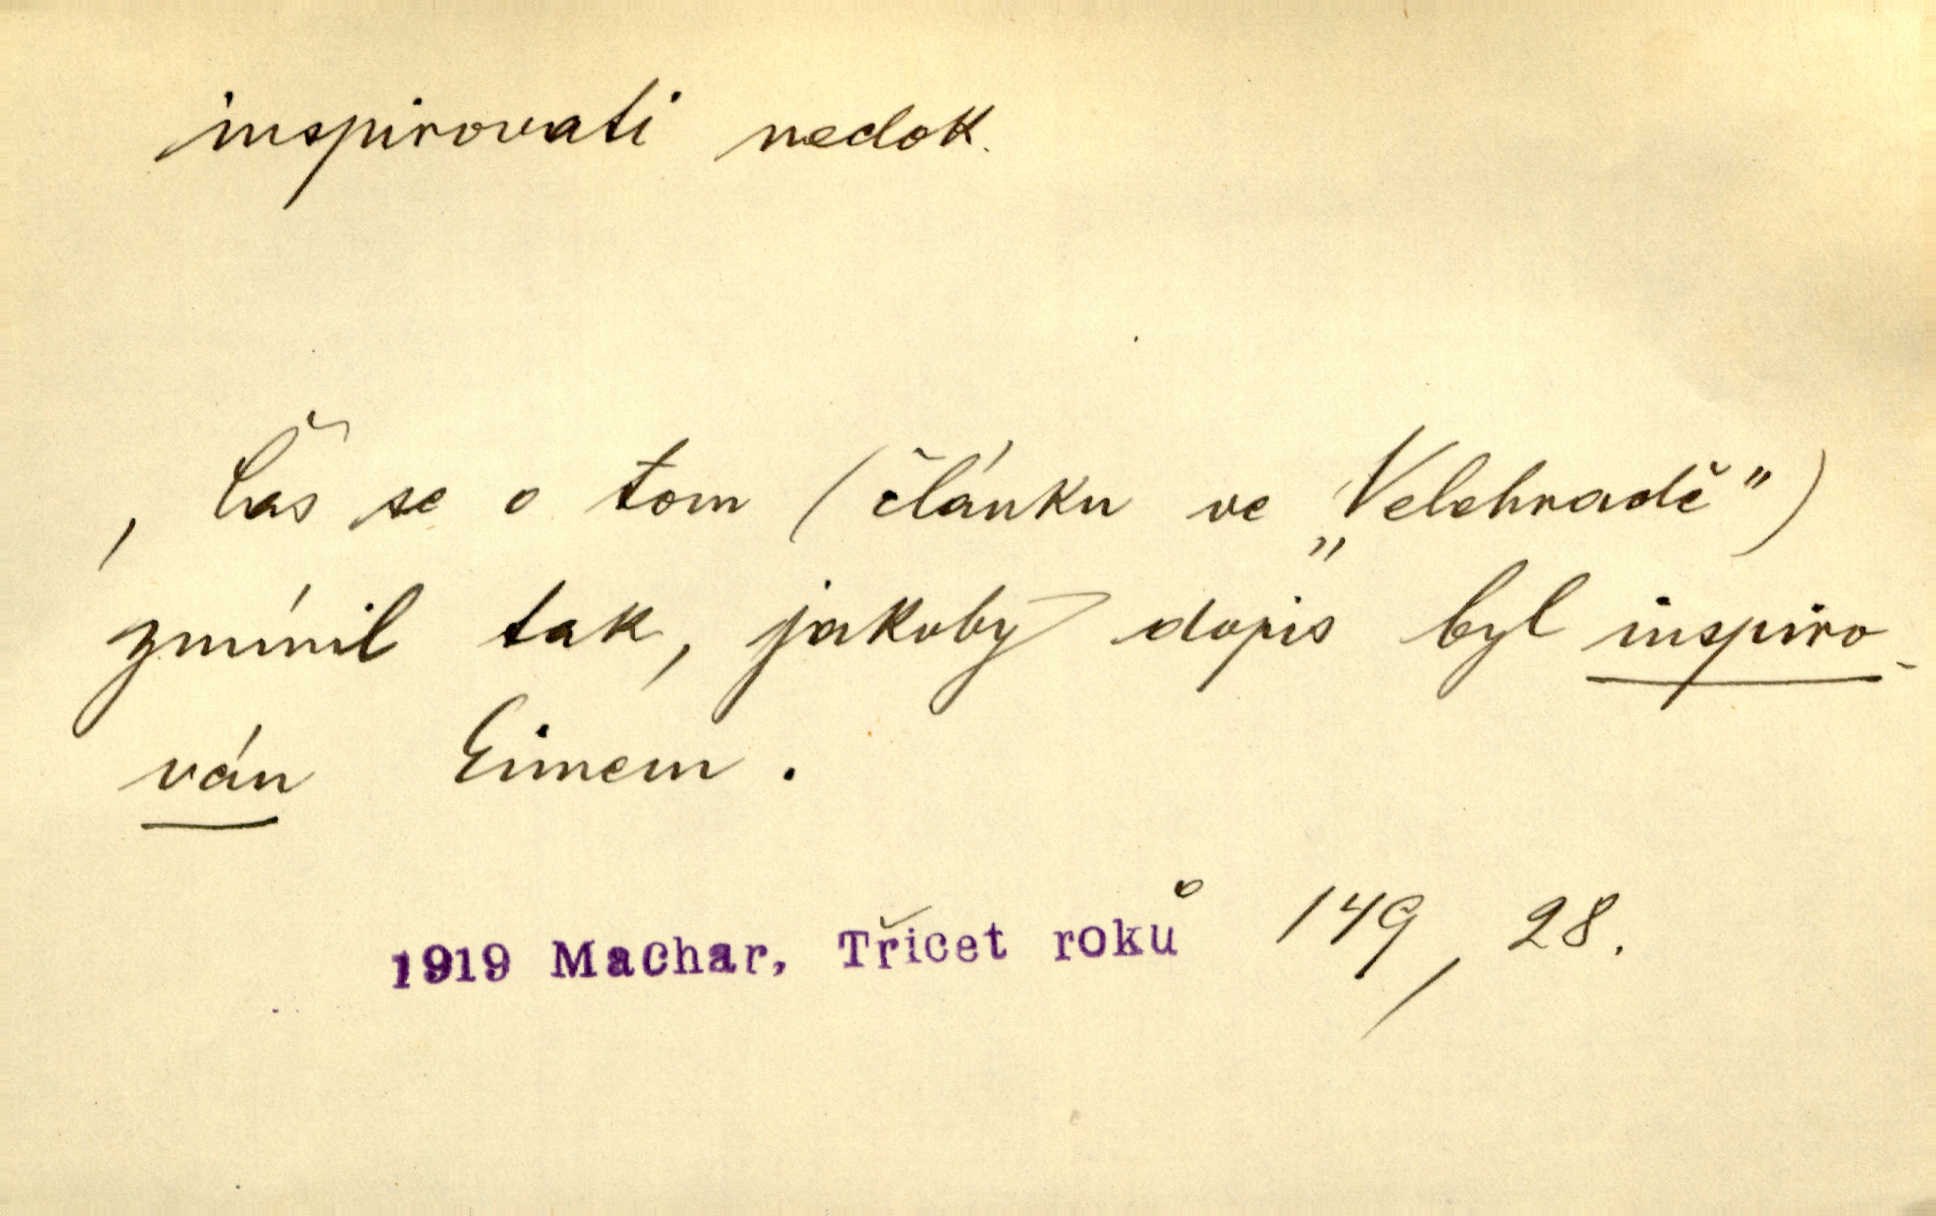 inspirovati nedok.
, Čas se o tom (článku ve „Velehradě")
zmínil tak, jakoby dopis byl inspiro-
ván Eimem.
1919 Machar, Třicet roků 149, 28.